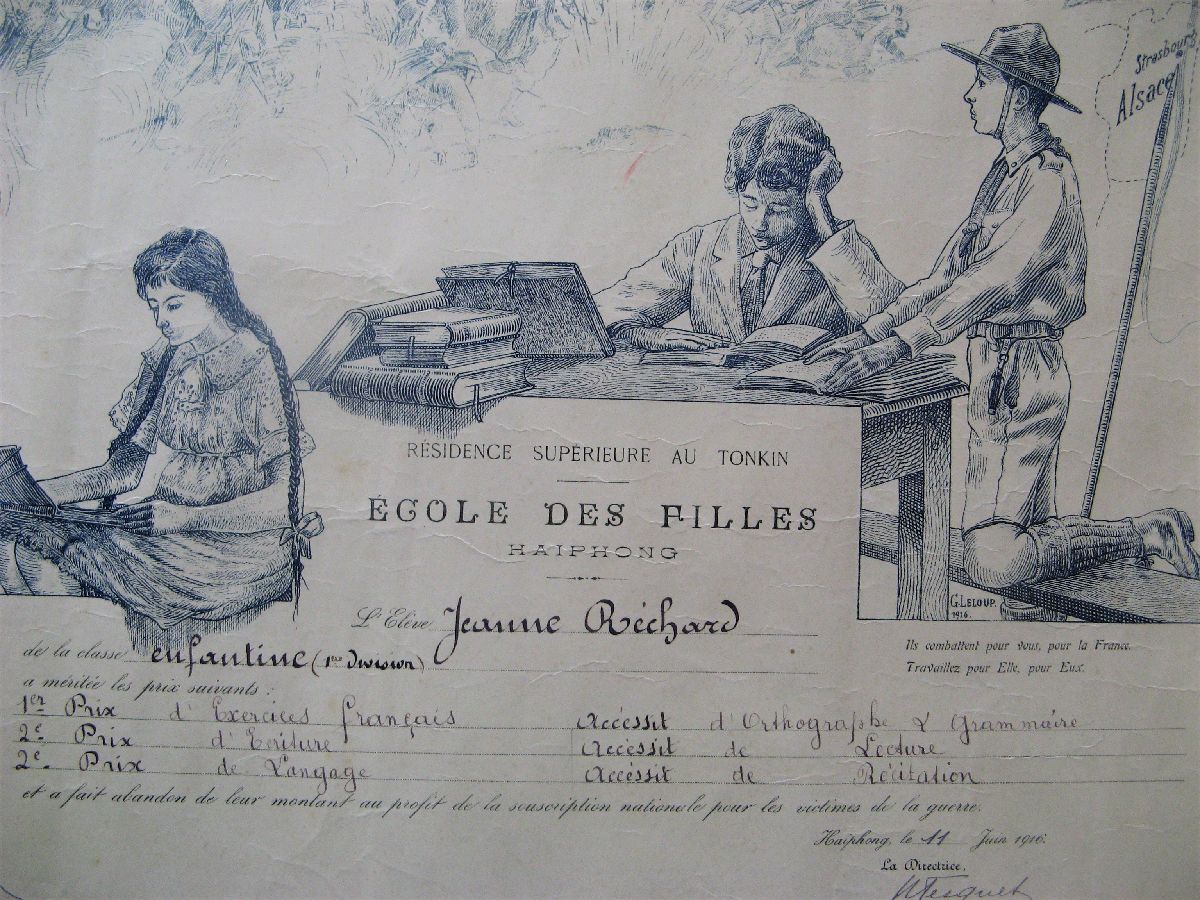 Strasbourg
Alsace
RÉSIDENCE SUPÉRIEURE AU TONKIN
ÉCOLE DES FILLES
HAIPHONG
G. LELOUP.
1916.
L'Elève Jeanne Réchard
Ils combattent pour vous, pour la France.
Travaillez pour Elle, pour Eux.
de la classe enfantine (1ère division)
a méritée les prix suivants :
1er Prix d'Exercices français Accéssit d'Orthographe & Grammaire
2e Prix d'Ecriture Accéssit de Lecture
2e Prix de Langage Accéssit de Récitation
et a fait abandon de leur montant au profit de la souscription nationale pour les victimes de la guerre.
Haiphong, le 11 Juin 1916.
La Directrice,